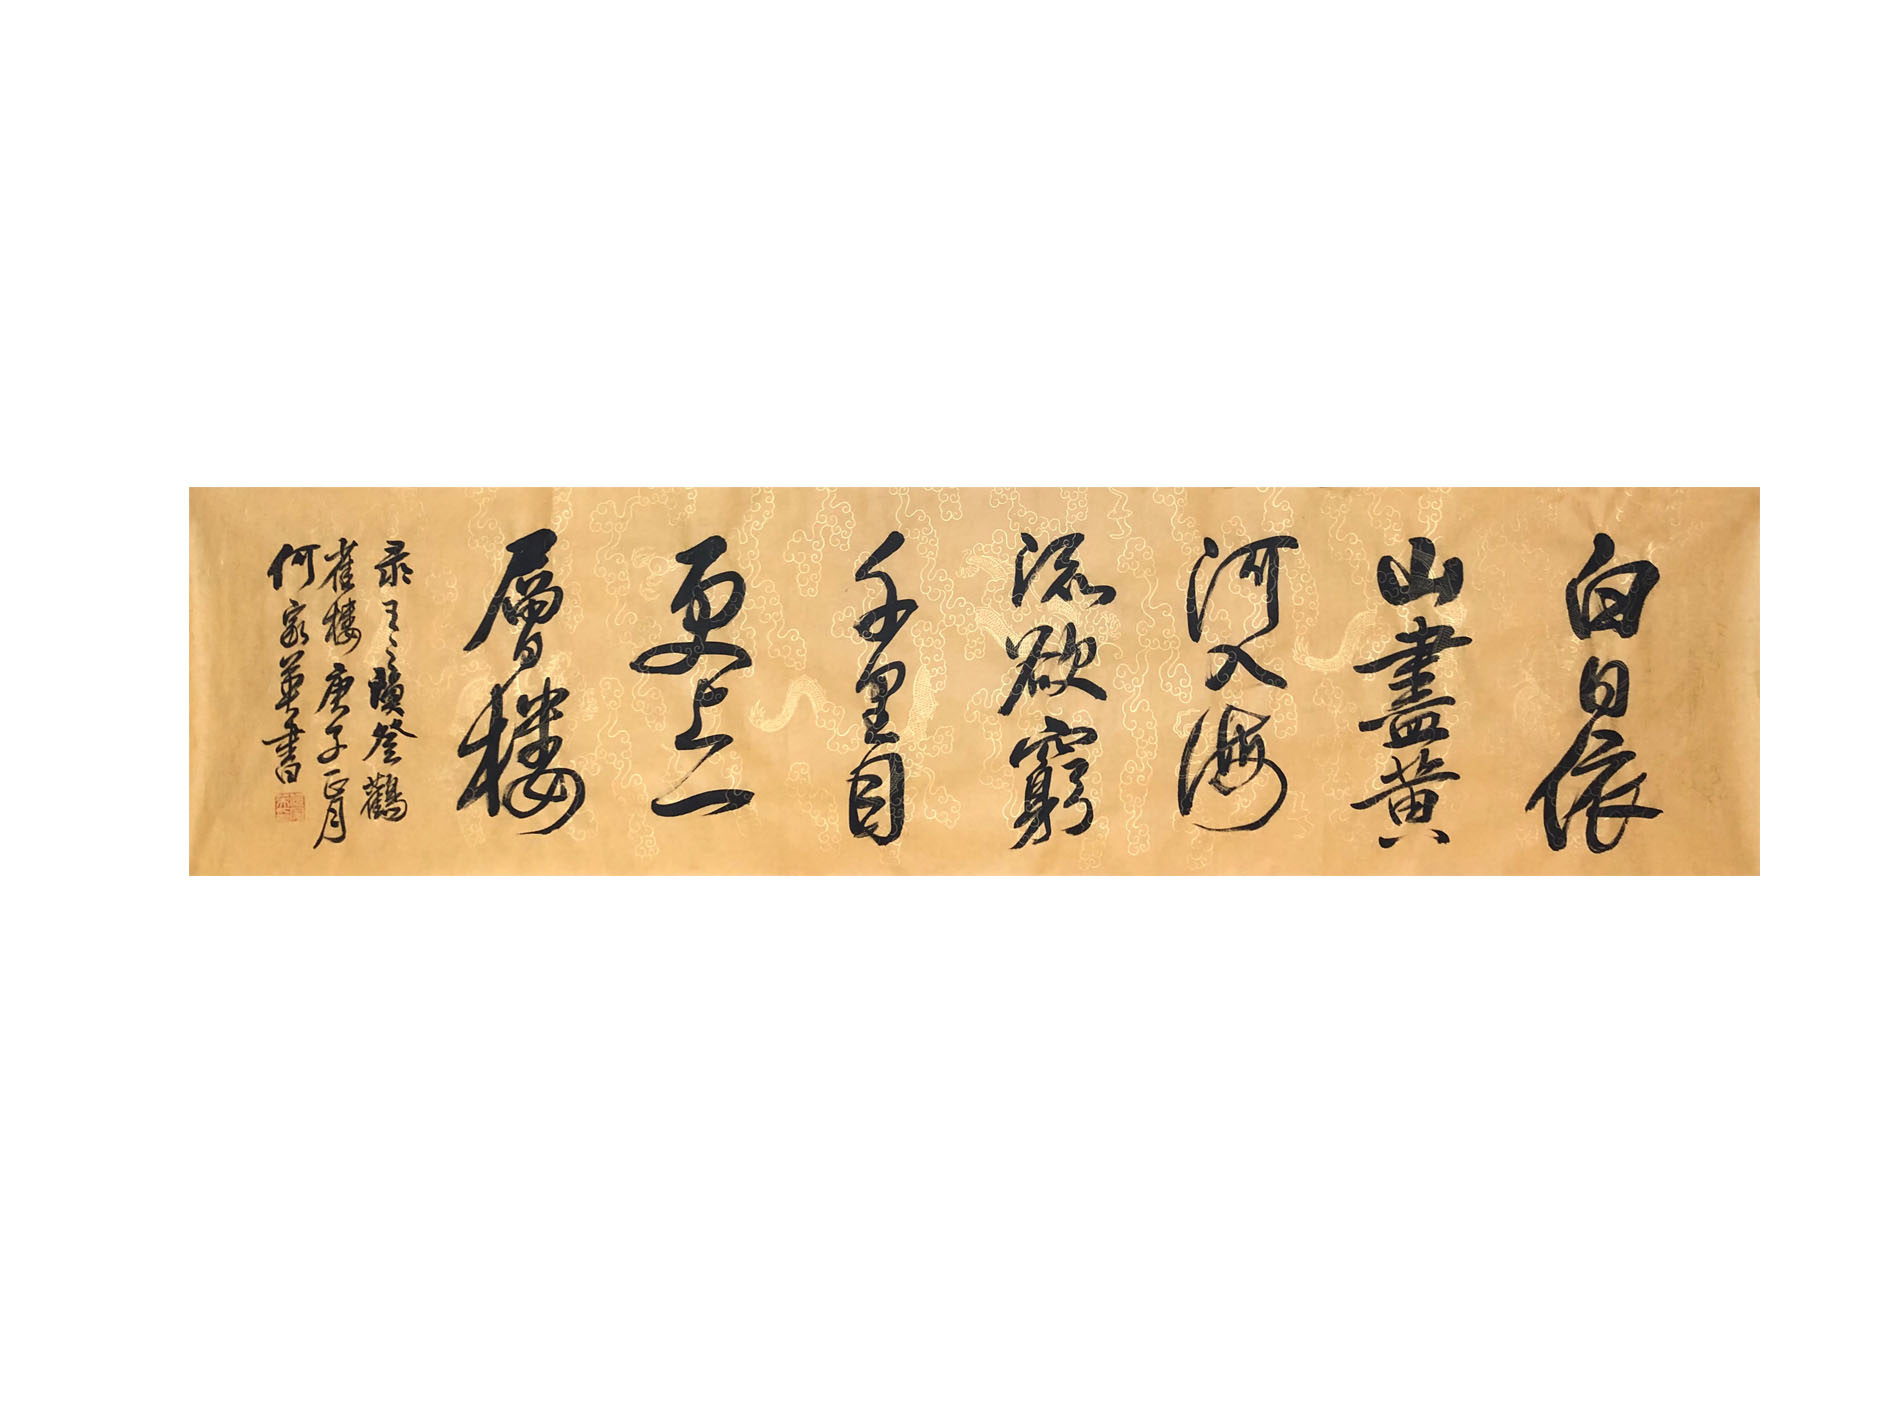 白日依
山盡黄
河入海
流欲窮
千里目
更上一
層樓
录王之渙登鸛
雀楼庚子正月
何家英書